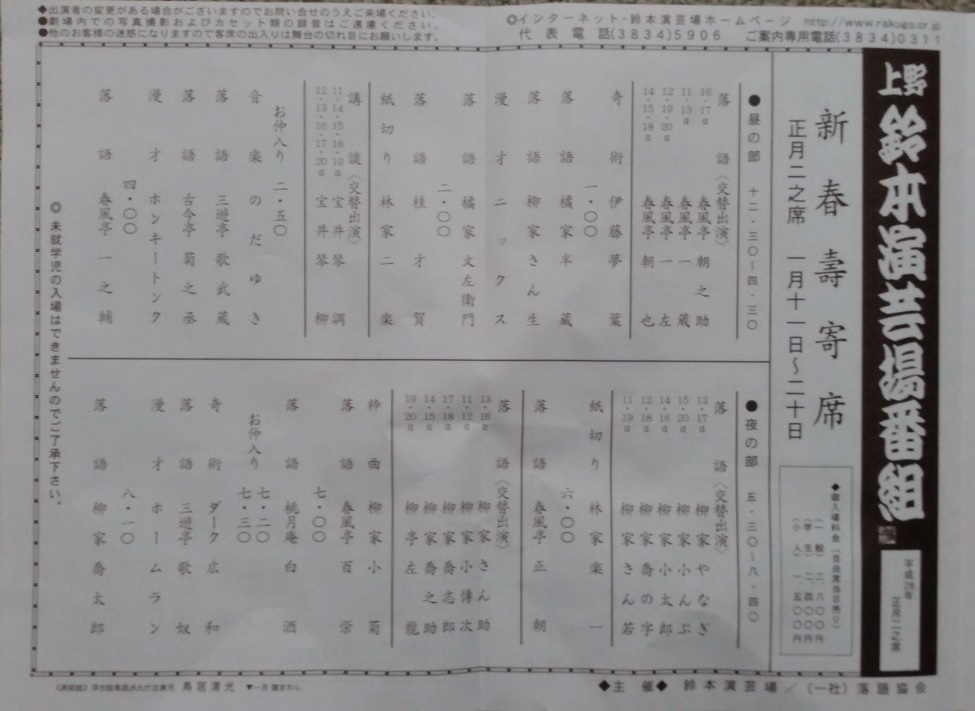 ●出演者の変更がある場合がございますのでお問い合せのうえご来場ください。
●劇場内での写真撮影およびカセット類の録音はご遠慮ください。
●他のお客様の迷惑になりますので客席の出入りは舞台の切れ目にお願いします。
◎インターネット・鈴本演芸場ホームページ http://www.rakugo.or.jp
代表電話(3834)5906 ご案内専用電話(3834)0311
上野 鈴本演芸場番組
平成28年
正月二之席
新春寿寄席
正月二之席 一月十一日～二十日
◆御入場料金(自由席当日売り)
(一般)二、八〇〇円
(学生)二、四〇〇円
(小人)一、五〇〇円
●昼の部 十二・三〇～四・三〇
落語〈交替出演〉
16・17日 春風亭朝之助
11・13日 春風亭一蔵
12・19・20日 春風亭一左
14・15・18日 春風亭朝也
奇術 伊藤夢葉
一・〇〇
落語 橘家半蔵
落語 柳家さん生
漫才 ニックス
落語 橘家文左衛門
二・〇〇
落語 桂才賀
紙切り 林家二楽
講談〈交替出演〉
11・14・15・18・19日 宝井琴調
12・13・16・17・20日 宝井琴柳
お仲入り 二・五〇
音楽 のだゆき
落語 三遊亭歌武蔵
落語 古今亭菊之丞
漫才 ホンキートンク
四・〇〇
落語 春風亭一之輔
●夜の部 五・三〇～八・四〇
落語〈交替出演〉
13・17日 柳家やなぎ
15・20日 柳家小んぶ
14・16日 柳家小太郎
12・18日 柳家喬の字
11・19日 柳家さん若
紙切り 林家楽一
六・〇〇
落語 春風亭正朝
落語〈交替出演〉
13・16日 柳家さん助
11・12日 柳家小傳次
17・18日 柳家喬志郎
14・15日 柳家喬之助
19・20日 柳亭左龍
粋曲 柳家小菊
七・〇〇
落語 春風亭百栄
落語 桃月庵白酒
お仲入り 七・二〇
七・三〇
奇術 ダーク広和
落語 三遊亭歌奴
漫才 ホームラン
八・一〇
落語 柳家喬太郎
◎未就学児の入場はできませんのでご了承下さい。
鳥居清光
◆主催◆ 鈴本演芸場／(一社)落語協会